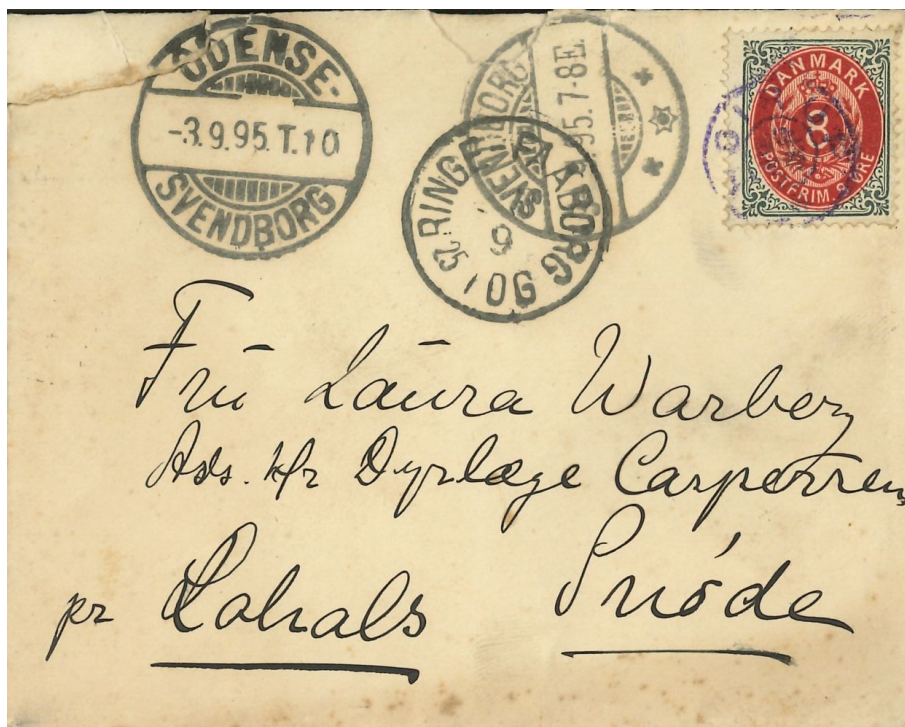 ODENSE-
-3.9.95.T.10
SVENDBORG
SVENDBORG
95.7-8E.
RINGE
FAABORG
OG
9
DANMARK
8
POSTFRIM. 8 ØRE
Frū Laūra Warberg
Ads. H/r Dyrlæge Casperrsen
pr Lohals Snóde